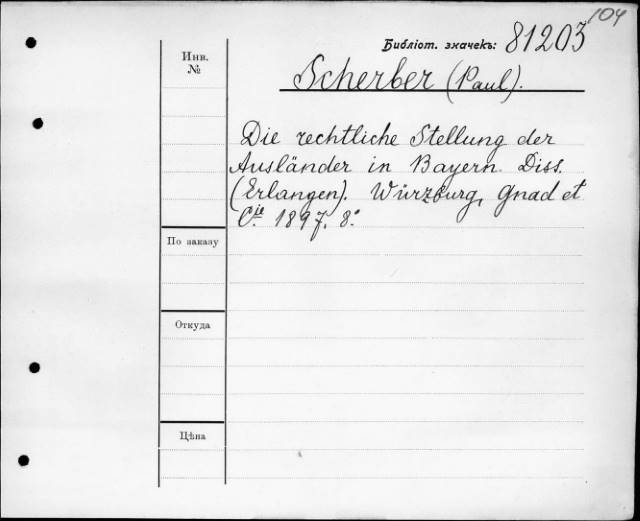 104
Библіот. значекъ: 81203
Инв.
№
Scherber (Paul).
Die rechtliche Stellung der
Ausländer in Bayern. Diss.
(Erlangen). Würzburg, Gnad et
Cie. 1897. 8°
По заказу
Откуда
Цѣна